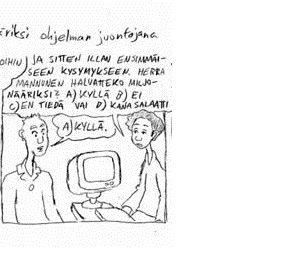 äriksi ohjelman juontajana
OIHIN, JA SITTEN ILLAN ENSIMMÄI-
SEEN KYSYMYKSEEN. HERRA
MANNUNEN HALUATTEKO MILJO-
NÄÄRIKSI? A) KYLLÄ B) EI
C) EN TIEDÄ VAI D) KANASALAATTI
A) KYLLÄ.